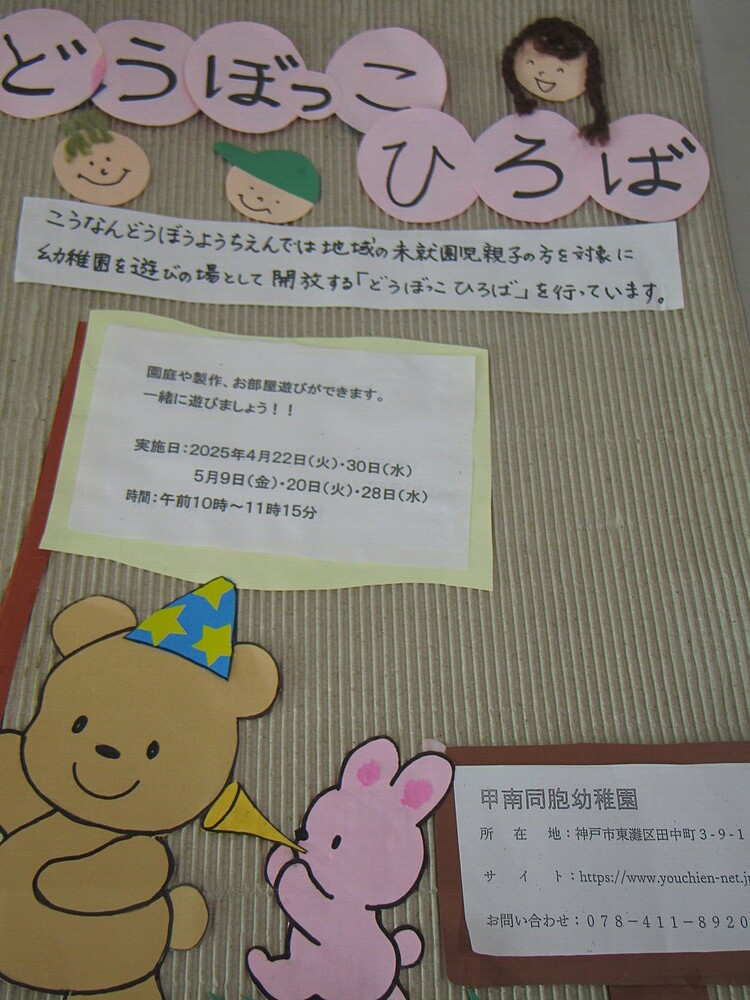 どうぼっこ
ひろば
こうなんどうぼうようちえんでは地域の未就園児親子の方を対象に
幼稚園を遊びの場として開放する「どうぼっこひろば」を行っています。
園庭や製作、お部屋遊びができます。
一緒に遊びましょう！！
実施日：2025年4月22日(火)・30日(水)
5月9日(金)・20日(火)・28日(水)
時間：午前10時～11時15分
甲南同胞幼稚園
所在地：神戸市東灘区田中町3-9-1
サイト：https://www.youchien-net.j
お問い合わせ：078-411-8920